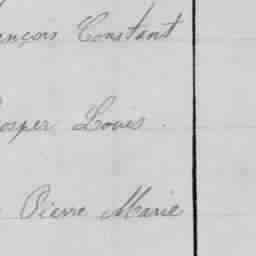 ançois Constant
osper Louis.
Pierre Marie